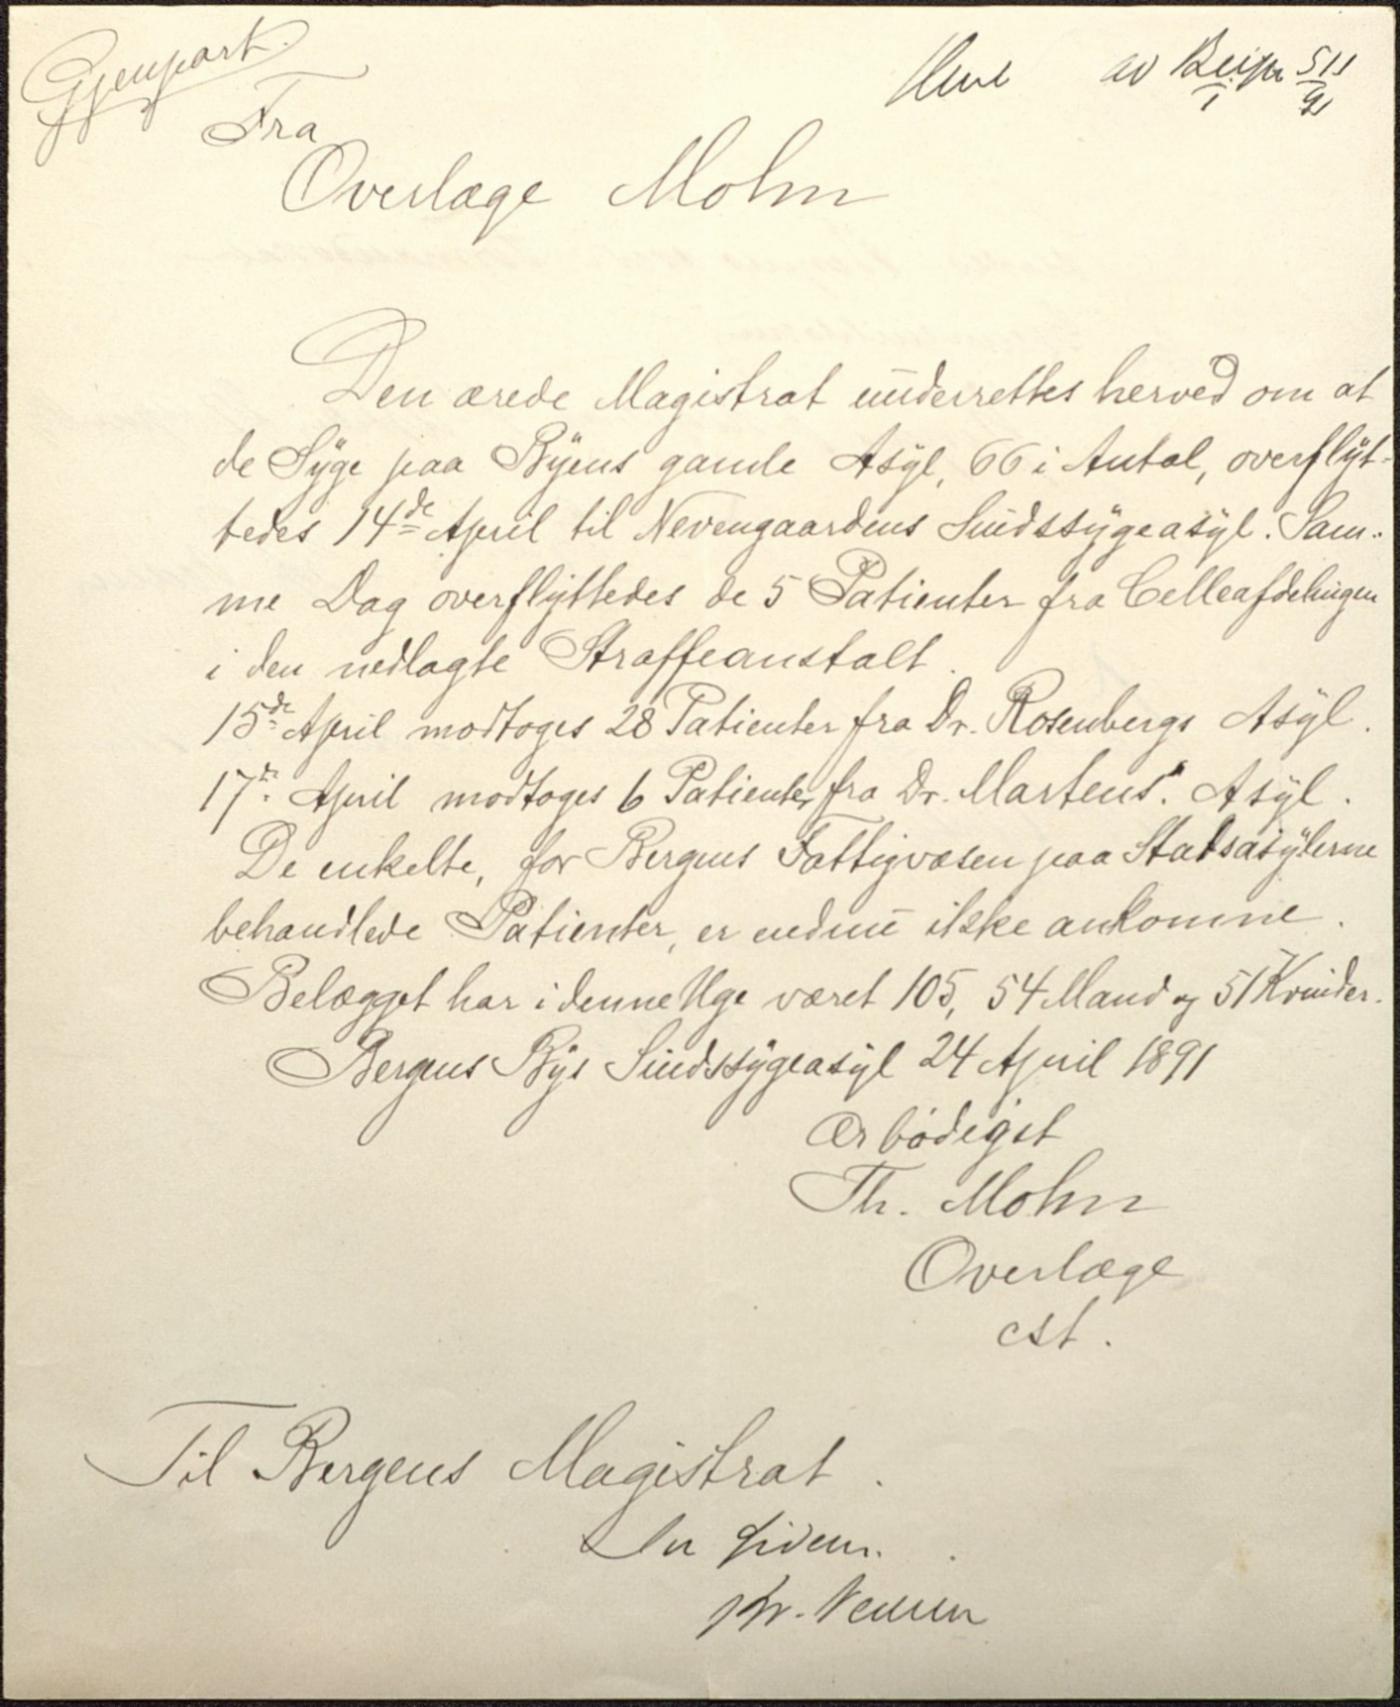 Gjenpart.
Fra
Overlæge Mohn
Den ærede Magistrat underrettes herved om at
de Syge paa Byens gamle Asyl, 66 i Antal, overflyt-
tedes 14de April til Nevengaardens Sindssygeasyl. Sam-
me Dag overflyttedes de 5 Patienter fra Celleafdelingen
i den nedlagte Straffeanstalt.
15de April modtoges 28 Patienter fra Dr. Rosenbergs Asyl.
17de April modtoges 6 Patienter fra Dr. Martens' Asyl.
De enkelte, for Bergens Fattigvæsen paa Statsasylerne
behandlede Patienter, er endnu ikke ankomne.
Belægget har i denne Uge været 105, 54 Mand og 51 Kvinder.
Bergens Bys Sindssygeasyl 24 April 1891
Ærbødigst
Th. Mohn
Overlæge
cst.
Til Bergens Magistrat.
In fidem.